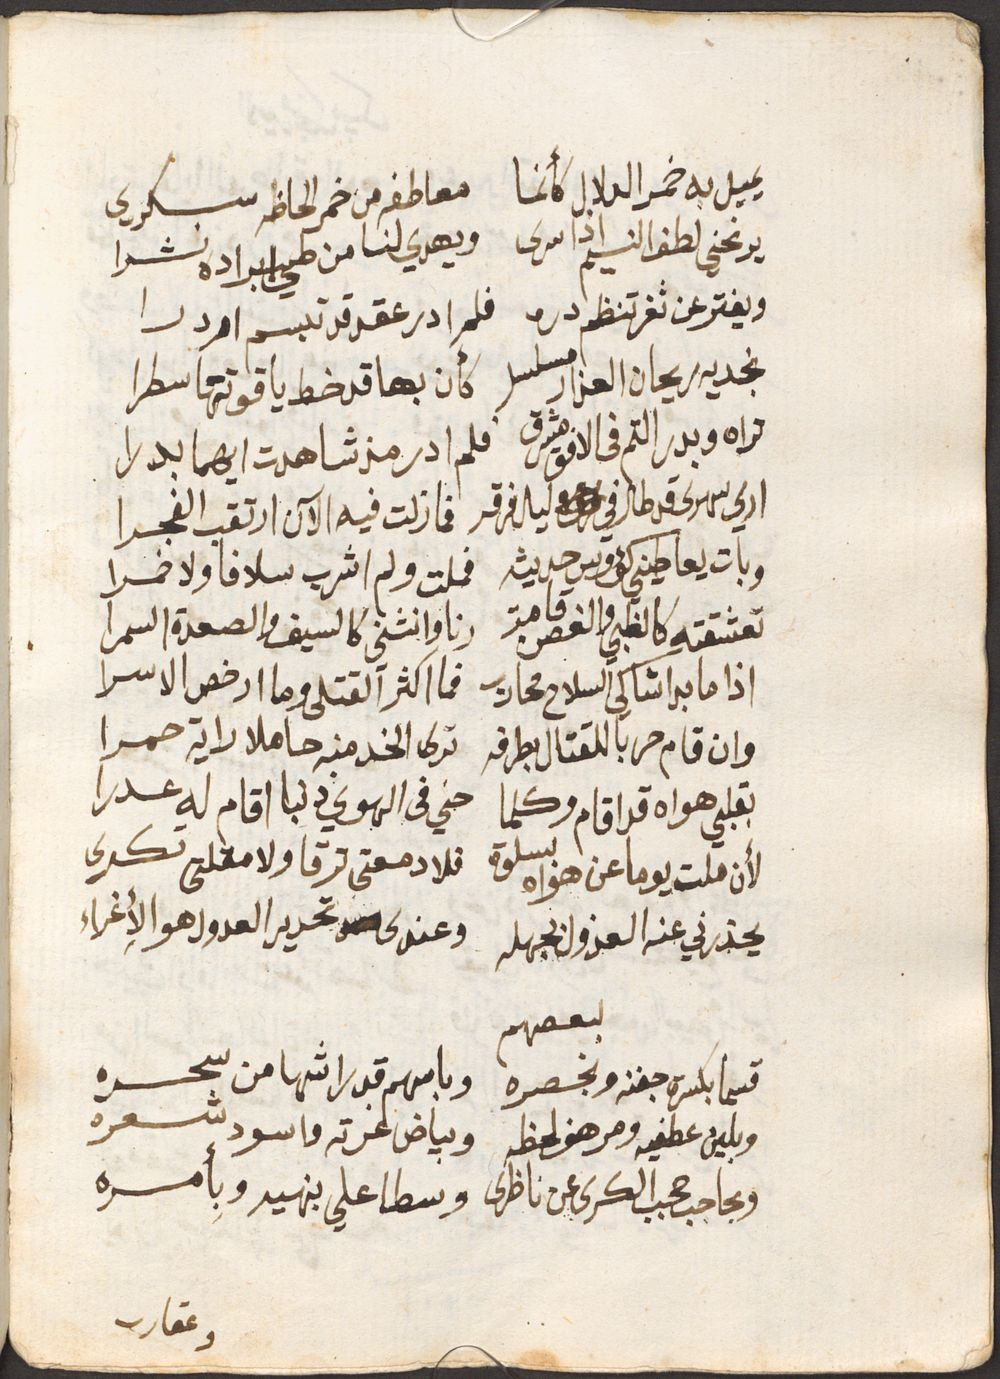 يميل به خمر الدلال كأنما معاطفه من خمر الحاظه سكرى
يرنحني لطف النسيم اذا سرى ويهدي لنا من طي ابراده نشرا
ويفتر عن ثغر تنظم دره فلم ادر عقد قد تبسم ام درا
بخديه ريحان العذار مسلسل كأن بها قد خط ياقوتها سطرا
تراه وبدر التم في الافق مشرق فلم ادر مذ شاهدت ايهما بدرا
ارى سهرى قد طال في ليل فرقه فما زلت فيه الآن ارتقب الفجرا
وبات يعاطيني كؤوس حديثه فملت ولم اشرب سلافا ولا خمرا
تعشقته كالظبي والغصن قامة رنا وانثنى كالسيف والصعدة السمرا
اذا ما بدا شاكي السلاح محارب فما اكثر القتلى وما ارخص الاسرا
وان قام حربا للقتال بطرفه ترى الخد منه حاملا راية حمرا
بقلبي هواه قد اقام وكلما جني في الهوى ذنبا اقام له عذرا
لأن ملت يوما عن هواه بسلوة فلا دمعتي ترقا ولا مقلتي تكرى
يحذرني عنه العذول بجهله وعندى تحذير العدول هو الأغراء
لبعضهم
قسما بكسرة جفنه وبخصره وباسهم قد راشها من سحره
وبلين عطفيه ومرهف لحظه وبياض غرته واسود شعره
وبحاجب حجب الكرى عن ناظرى وسطا علي بنهيه وبأمره
وعقارب